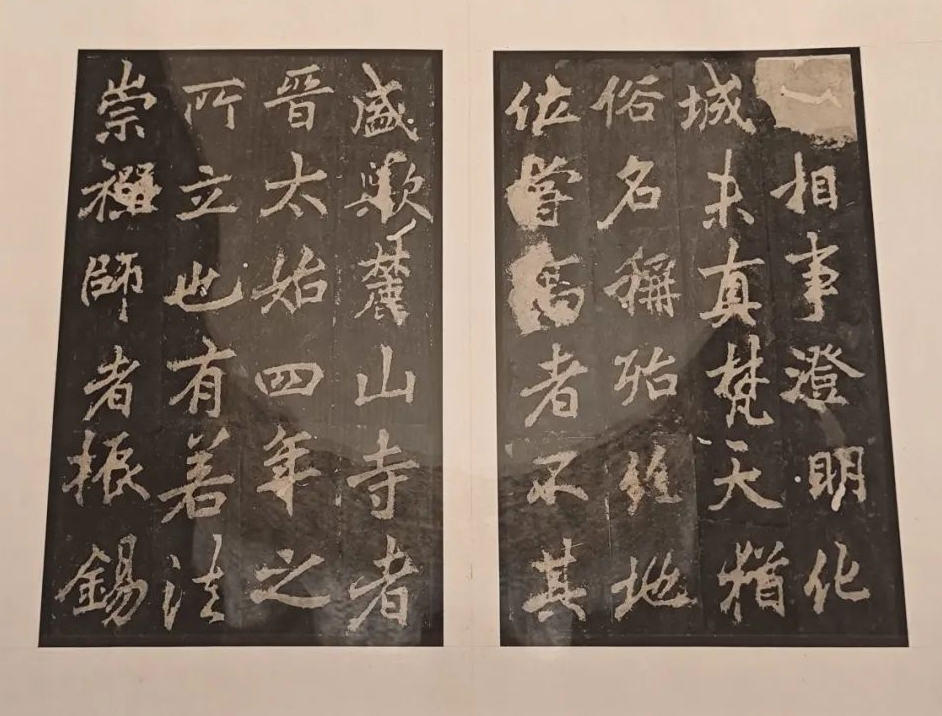 一相事澄明化
城未真梵天猶
俗名稱殆絕地
位嘗高者不其
盛歟麓山寺者
晉太始四年之
所立也有若法
崇禪師者振錫